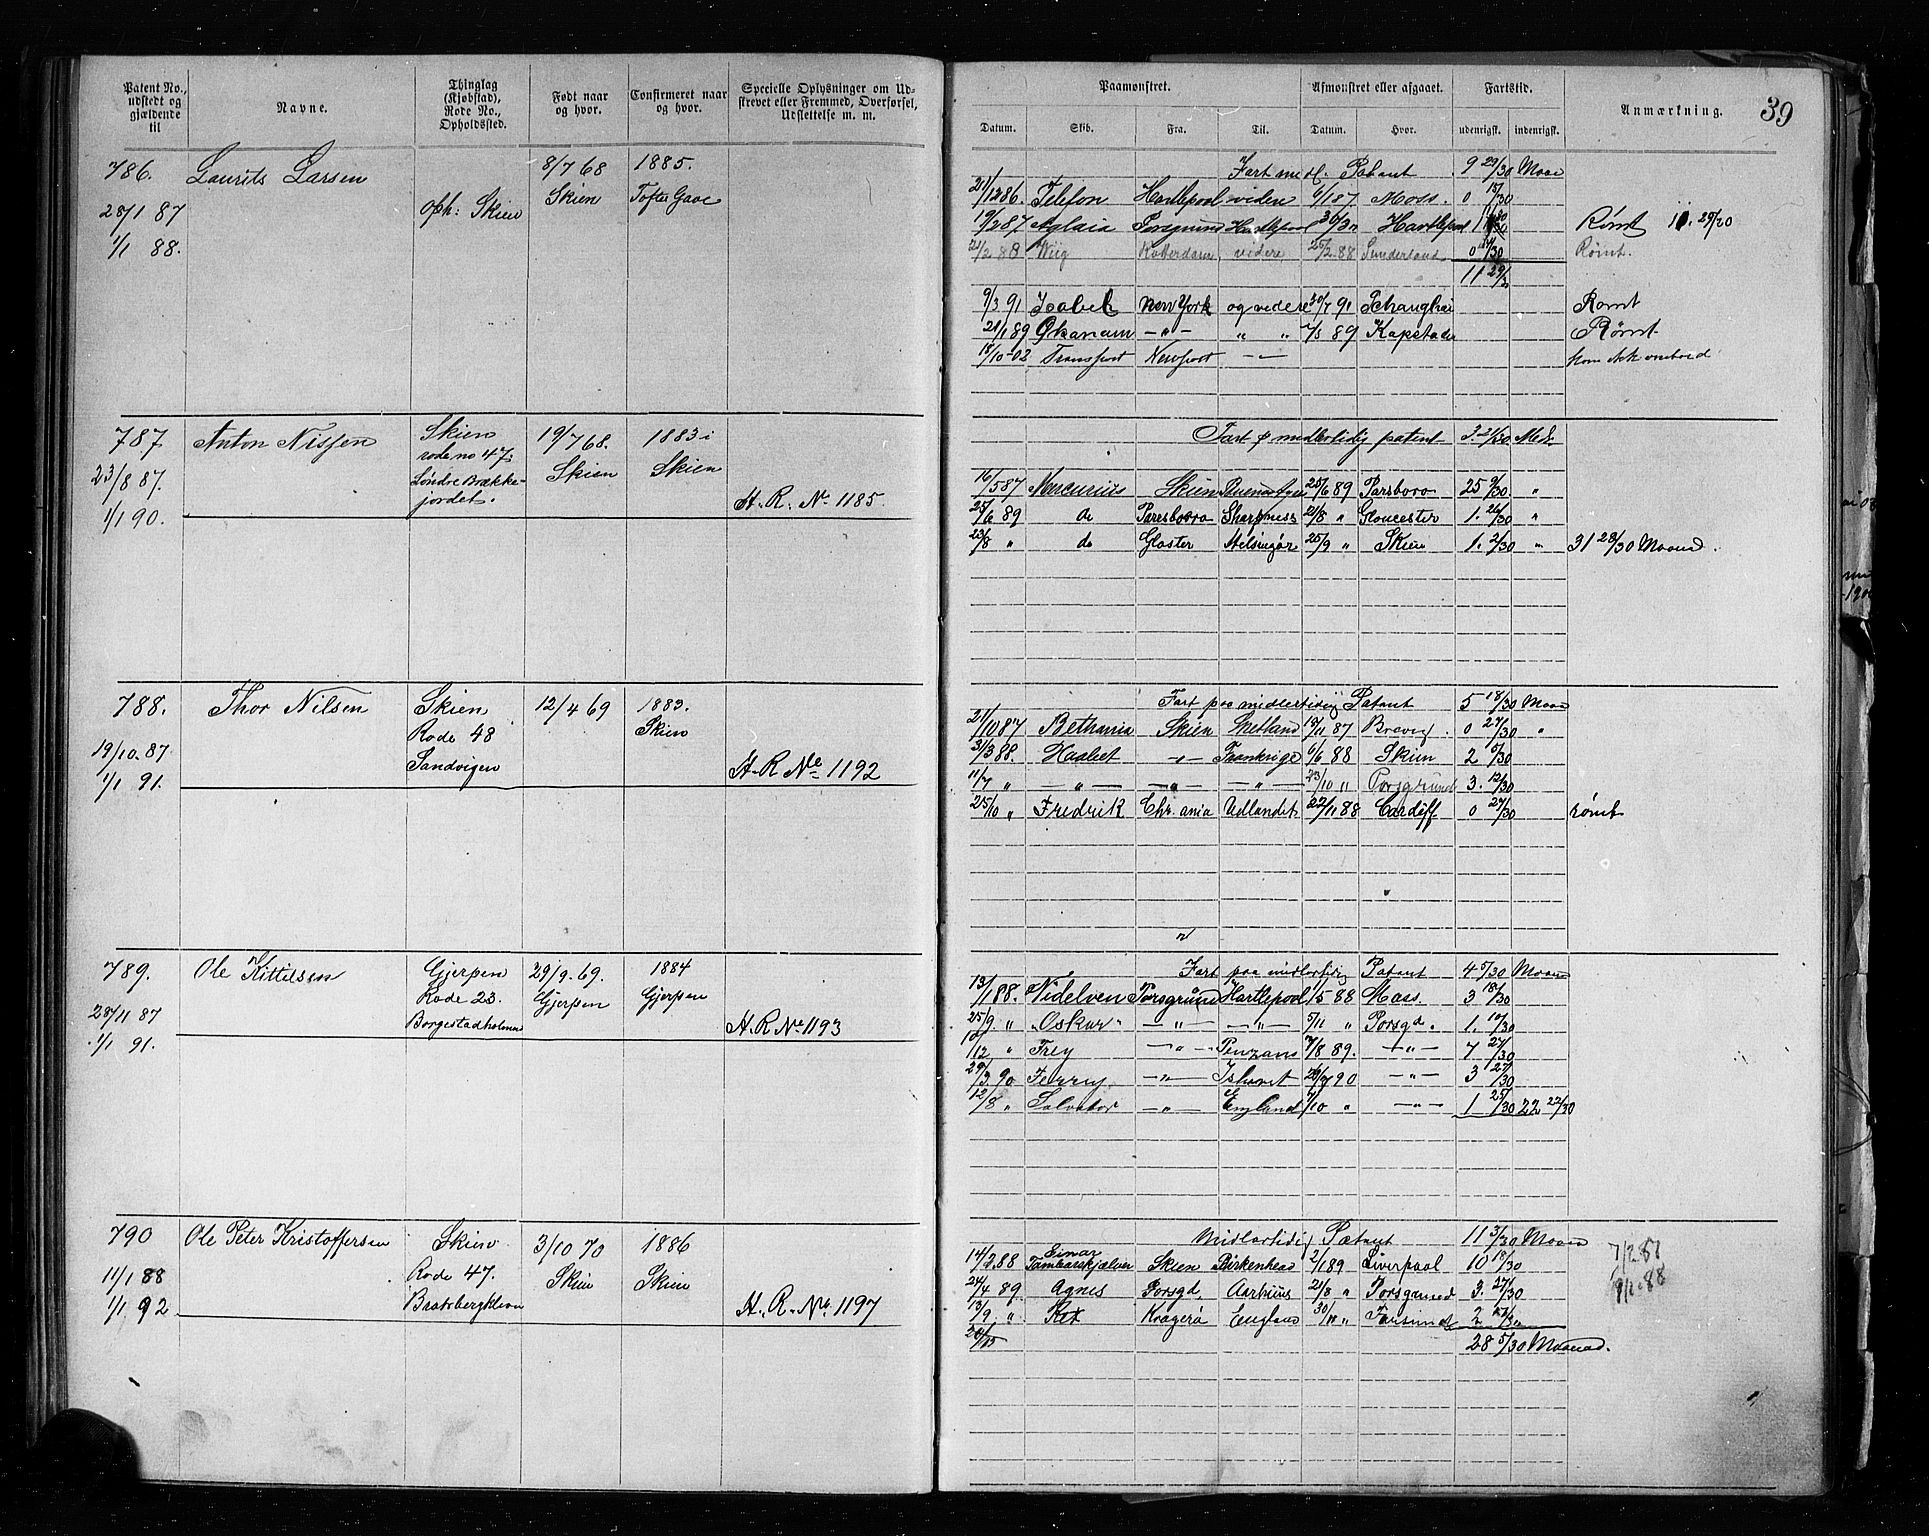 39
Patent No., udstedt og gjældende til
Navne.
Thinglag (Kjøbstad), Rode No., Opholdssted.
Født naar og hvor.
Confirmeret naar og hvor.
Specielle Oplysninger om Udstrevet eller Fremmed, Overførsel, Udslettelse m. m.
Paamønstret.
Afmønstret eller afgaaet.
Fartstid.
Anmærkning.
Datum. Skib. Fra. Til. Datum. Hvor. udenrigsk. indenrigsk.
786. Laurits Larsen 8/7 68 1885.
oph: Skien Skien Tofte Gave
28/1 87
1/1 88.
Fart midl. Patent 9 29/30 Maan
21/12 86. Telefon Hartlepool viden 6/1 87 Moss. 0 15/30
19/2 87 Aglaia Porsgrund Hartlepool Hartlepool Rømt 11. 29/30
21/2 88 Wiig Rotterdam videre 25/2 88 Sunderland 0 Rømt.
11 29/30
9/3 91 Isabel New York og videre 30/7 91 Schanghai Rømt
21/1 89 — " — " " 7/5 89 Kapstaden Rømt
18/10-02 Transport Newport — Kom ikke ombord
787 Anton Nissen Skien 19/7 68. 1883 i
rode no 47; Skien Skien
23/8 87. Søndre Brække-
jordet.
1/1 90. H. R. No 1185.
Fart p midlertidig patent 3. 21/30 Md.
16/5 87 Mercurius Skien Buenos Ayres 25/6 89 Parsboro 25 9/30 "
25/6 89 do Parrsboro Sharpness 21/8 " Gloucester 1. 26/30 "
23/8 " do Gloster Helsingør 25/9 " Skien 1. 2/30 " 31 28/30 Maaned.
788. Thor Nilsen Skien 12/4 69 1883.
Rode 48 Skien
19/10. 87 Sandvigen
1/1 91. H. R No 1192
Fart paa midlertidig Patent 5 18/30 Maan
21/10 87 Bethania Skien Shetland 19/11 87 Brevig. 0 27/30 "
31/3 88. Haabet — " — Frankrige 6/6 88 Skien 2 /30
11/7 " — " — — " — — " — 23/10 " Porsgrund 3. 12/30
25/10 " Fredrik Chr. ania Udlandet 22/11 88 Cardiff 0 27/30 rømt
789. Ole Kittilsen Gjerpen 29/9. 69. 1884
Rode 23. Gjerpen Gjerpen
28/11 87 Borgestadholmen
1/1 91. H. R No 1193
Fart paa midlertidig Patent 4 5/30 Maan
13/1 88. Nidelven Porsgrund Hartlepool 1/5 88 Moss 3 18/30
25/9 " "Oskar" — " — — " — 5/11 " Porsgd. 1. 10/30
/12 " Frey — " — Penzans 7/8 89. — " — 7 27/30
29/3 90 Ferry — " — Ishavet 26/7 90 — " — 3 27/30
12/8 " Salvator — " — England 7/10 " — " — 1 25/30 22 22/30
790 Ole Peter Kristoffersen Skien 3/10 70 1886
Rode 47. Skien Skien
11/1 88 Bratsbergkleven
1/1 92 H. R. No. 1197
Midlertidig Patent 11 3/30 Maan
14/2 88 Einar Tambarskjælver Skien Birkenhead 2/1 89 Liverpool 10 18/30
24/4 89. Agnes Porsgd. Aarhuus 21/8 " Porsgrund 3. 27/30
13/9 " Kragerø England 30/11 " Farsund 2
28 5/30 Maaned.